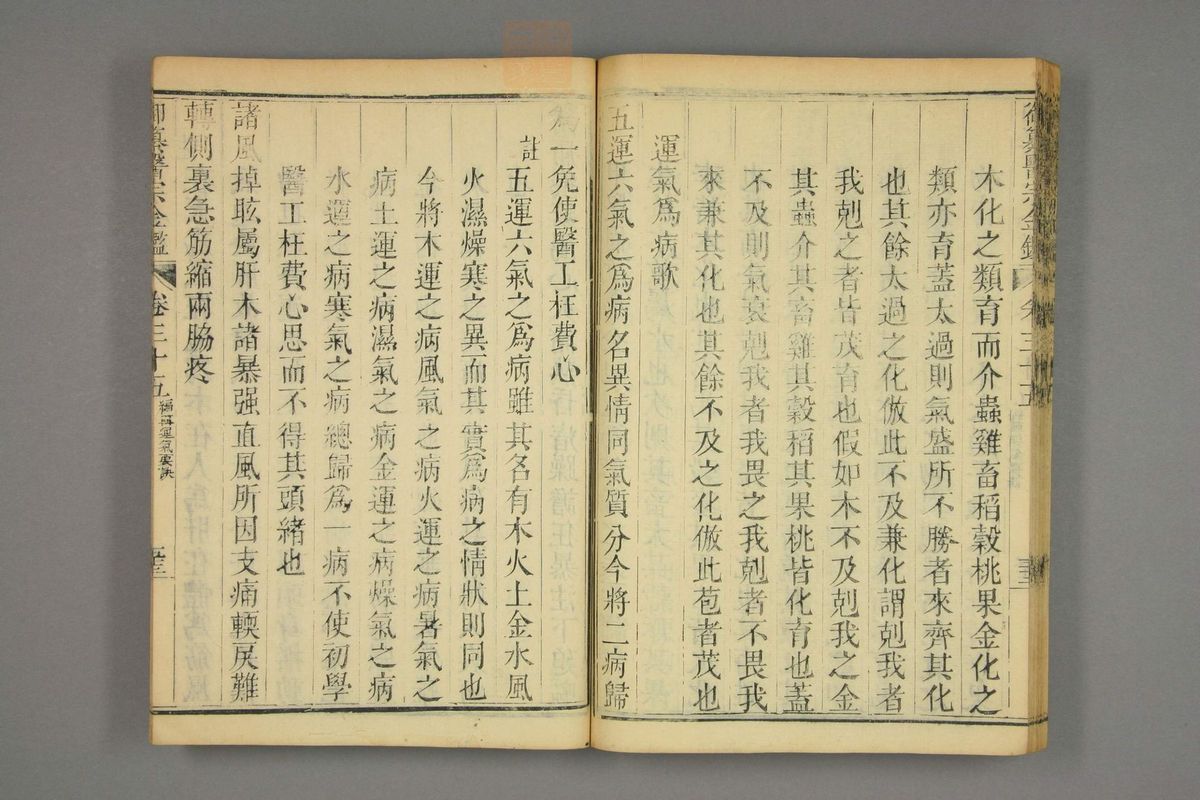 御纂醫宗金鑑 卷三十五
木化之類育而介蟲雞畜稻穀桃果金化之
類亦育蓋太過則氣盛所不勝者來齊其化
也其餘太過之化倣此不及兼化謂剋我者
我剋之者皆茂育也假如木不及剋我之金
其蟲介其畜雞其穀稻其果桃皆化育也蓋
不及則氣衰剋我者我畏之我剋者不畏我
來兼其化也其餘不及之化倣此苞者茂也
運氣為病歌
五運六氣之為病名異情同氣質分今將二病歸
為一免使醫工枉費心
註五運六氣之為病雖其名有木火土金水風
火濕燥寒之異而其實為病之情狀則同也
今將木運之病風氣之病火運之病暑氣之
病土運之病濕氣之病金運之病燥氣之病
水運之病寒氣之病總歸為一病不使初學
醫工枉費心思而不得其頭緒也
諸風掉眩屬肝木諸暴强直風所因支痛輭戾難
轉側裏急筋縮兩脇疼
御纂醫宗金鑑 卷三十五 編輯運氣要訣